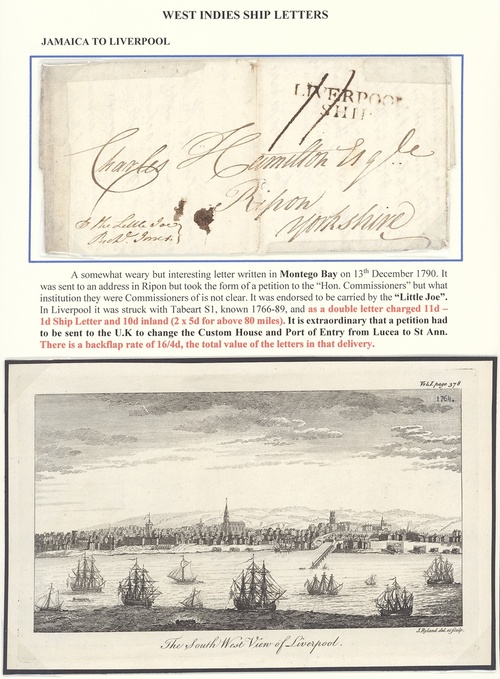 WEST INDIES SHIP LETTERS
JAMAICA TO LIVERPOOL
11
LIVERPOOL
SHIP
Charles Hamilton Esqre
Ripon
Yorkshire
the Little Joe
A somewhat weary but interesting letter written in Montego Bay on 13th December 1790. It
was sent to an address in Ripon but took the form of a petition to the “Hon. Commissioners” but what
institution they were Commissioners of is not clear. It was endorsed to be carried by the “Little Joe”.
In Liverpool it was struck with Tabeart S1, known 1766-89, and as a double letter charged 11d –
1d Ship Letter and 10d inland (2 x 5d for above 80 miles). It is extraordinary that a petition had
to be sent to the U.K to change the Custom House and Port of Entry from Lucea to St Ann.
There is a backflap rate of 16/4d, the total value of the letters in that delivery.
Vol.I. page 378
1764.
J.Ryland del. et sculp.
The South West View of Liverpool.